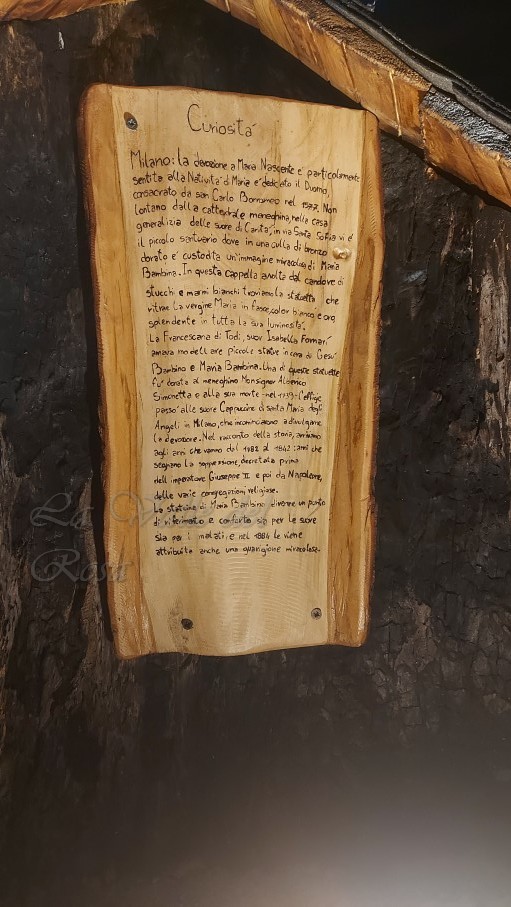 Curiosità
Milano: la devozione a Maria Nascente e' particolarmente
sentita alla Natività di Maria e' dedicato il Duomo,
consacrato da san Carlo Borromeo nel 1577. Non
lontano dalla cattedrale meneghina, nella casa
generalizia delle suore di Carita', in via Santa Sofia vi e'
il piccolo santuario dove in una culla di bronzo
dorato e' custodita un'immagine miracolosa di Maria
Bambina. In questa cappella avolta dal candore di
stucchi e marmi bianchi troviamo la statuetta che
ritrae la vergine Maria in fasce, color bianco e oro,
splendente in tutta la sua luminosità.
La Francescana di Todi, suor Isabella Fornari
amava modellare piccole statue in cera di Gesu'
Bambino e Maria Bambina. Una di queste statuette
fu' donata al meneghino Monsignor Alberico
Simonetta e alla sua morte nel 1739 l'effige
passo' alle suore Cappuccine di santa Maria degli
Angeli in Milano, che incominciarono a divulgarne
la devozione. Nel racconto della storia, arriviamo
agli anni che vanno del 1782 al 1842: anni che
segnano la soppressione, decretata prima
dell imperatore Giuseppe II e poi da Napoleone,
delle varie congregazioni religiose.
La statuina di Maria Bambina divenne un punto
di riferimento e conforto sia per le suore
sia per i malati e nel 1884 le viene
attribuita anche una guarigione miracolosa.
Rosa